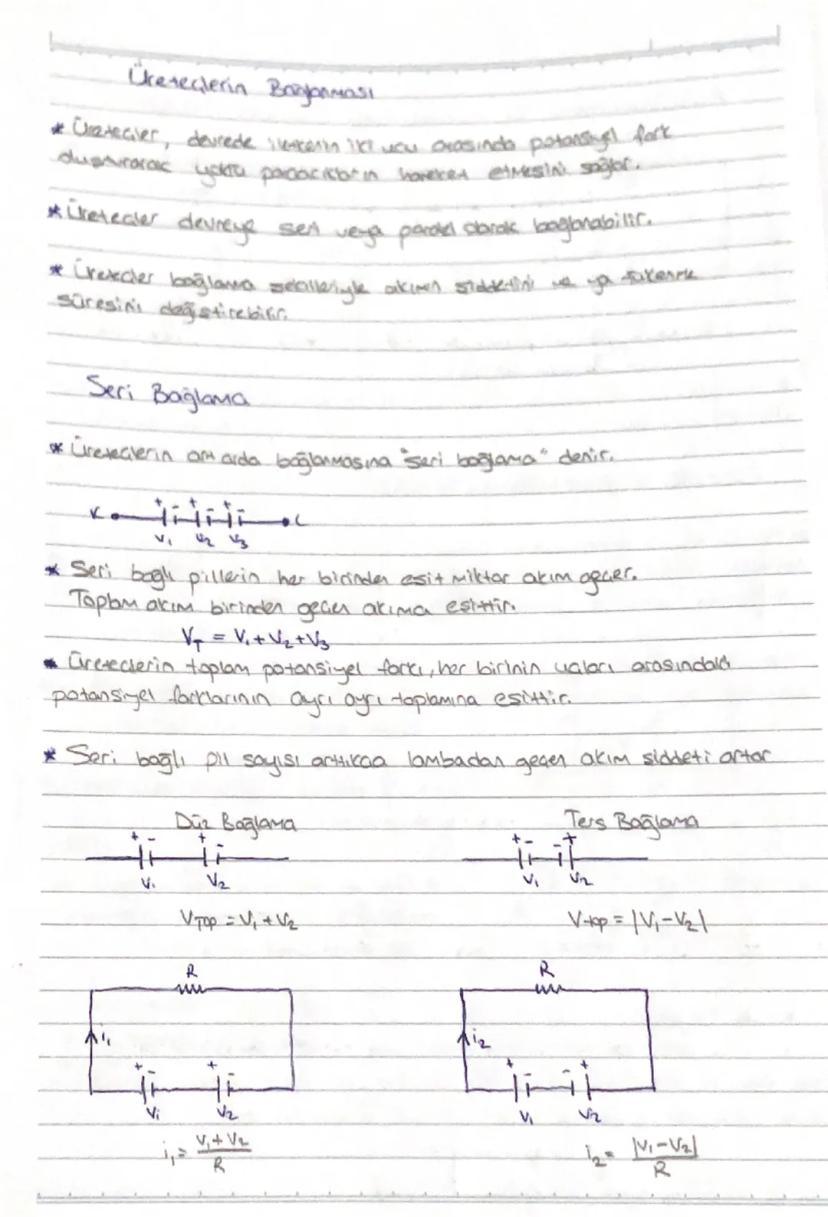 Üreteçlerin Bağlanması
* Üreteçler, devrede iletkenin iki ucu arasında potansiyel fark
oluşturarak yüklü parçacıkların hareket etmesini sağlar.
* Üreteçler devreye seri veya paralel olarak bağlanabilir.
* Üreteçler bağlanma şekilleriyle akımın şiddetini ve ya tükenme
süresini değiştirebilir.
Seri Bağlama
* Üreteçlerin art arda bağlanmasına "seri bağlama" denir.
K + - + - + - L
V₁ V₂ V₃
* Seri bağlı pillerin her birinden eşit miktar akım geçer.
Toplam akım birinden geçen akıma eşittir.
V_T = V₁ + V₂ + V₃
* Üreteçlerin toplam potansiyel farkı, her birinin uçları arasındaki
potansiyel farklarının ayrı ayrı toplamına eşittir.
* Seri bağlı pil sayısı arttıkça lambadan geçen akım şiddeti artar
Düz Bağlama Ters Bağlama
+ - + - + - - +
V₁ V₂ V₁ V₂
V_TOP = V₁ + V₂ V_top = |V₁ - V₂|
R R
i₁ i₂
+ - + - + - - +
V₁ V₂ V₁ V₂
i₁ = (V₁ + V₂)/R i₂ = |V₁ - V₂|/R